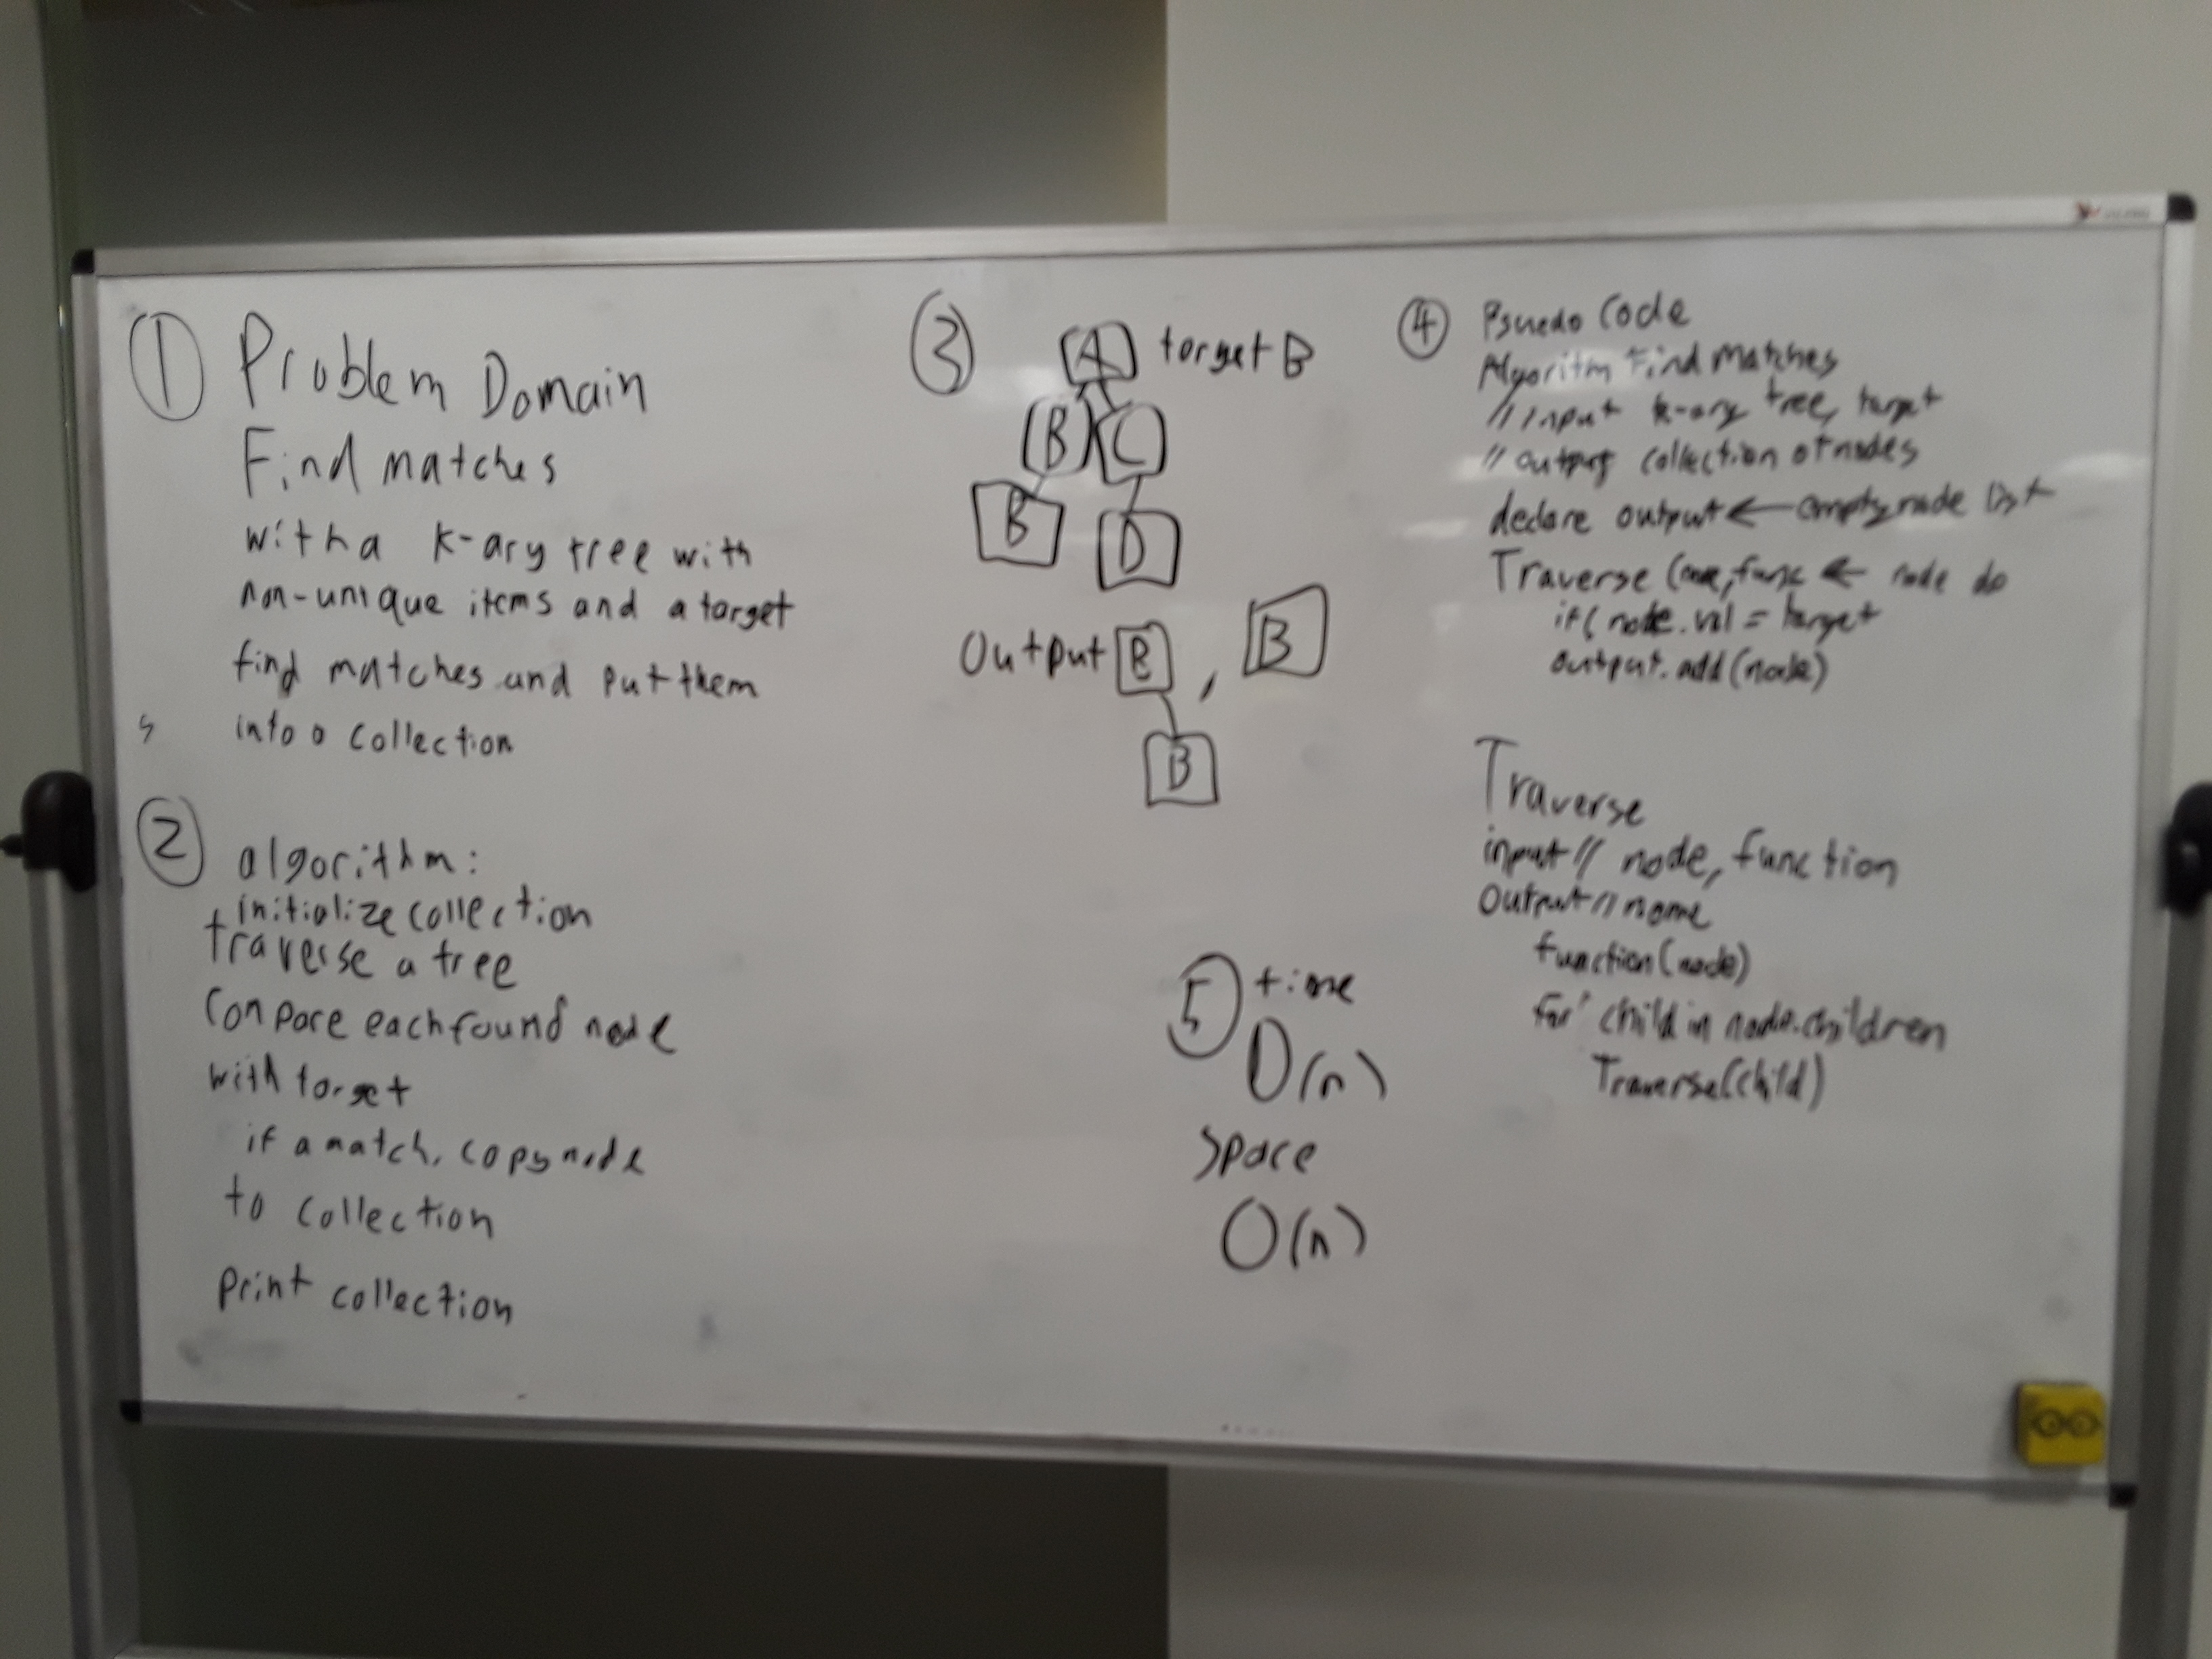 ① Problem Domain
Find matches
with a K-ary tree with
non-unique items and a target
find matches and put them
into a collection
② algorithm:
initialize collection
traverse a tree
Compare each found node
with target
if a match, copy node
to collection
print collection
③
A target B
B C
B D
Output B , B
B
④ Psuedo Code
Algoritm Find Matches
// input k-ary tree, target
// output collection of nodes
declare output ← empty node list
Traverse ( func ← node do
if( node.val = target
output.add(node)
Traverse
input// node, function
Output// none
function(node)
for child in node.children
Traverse(child)
⑤ time
O(n)
Space
O(n)